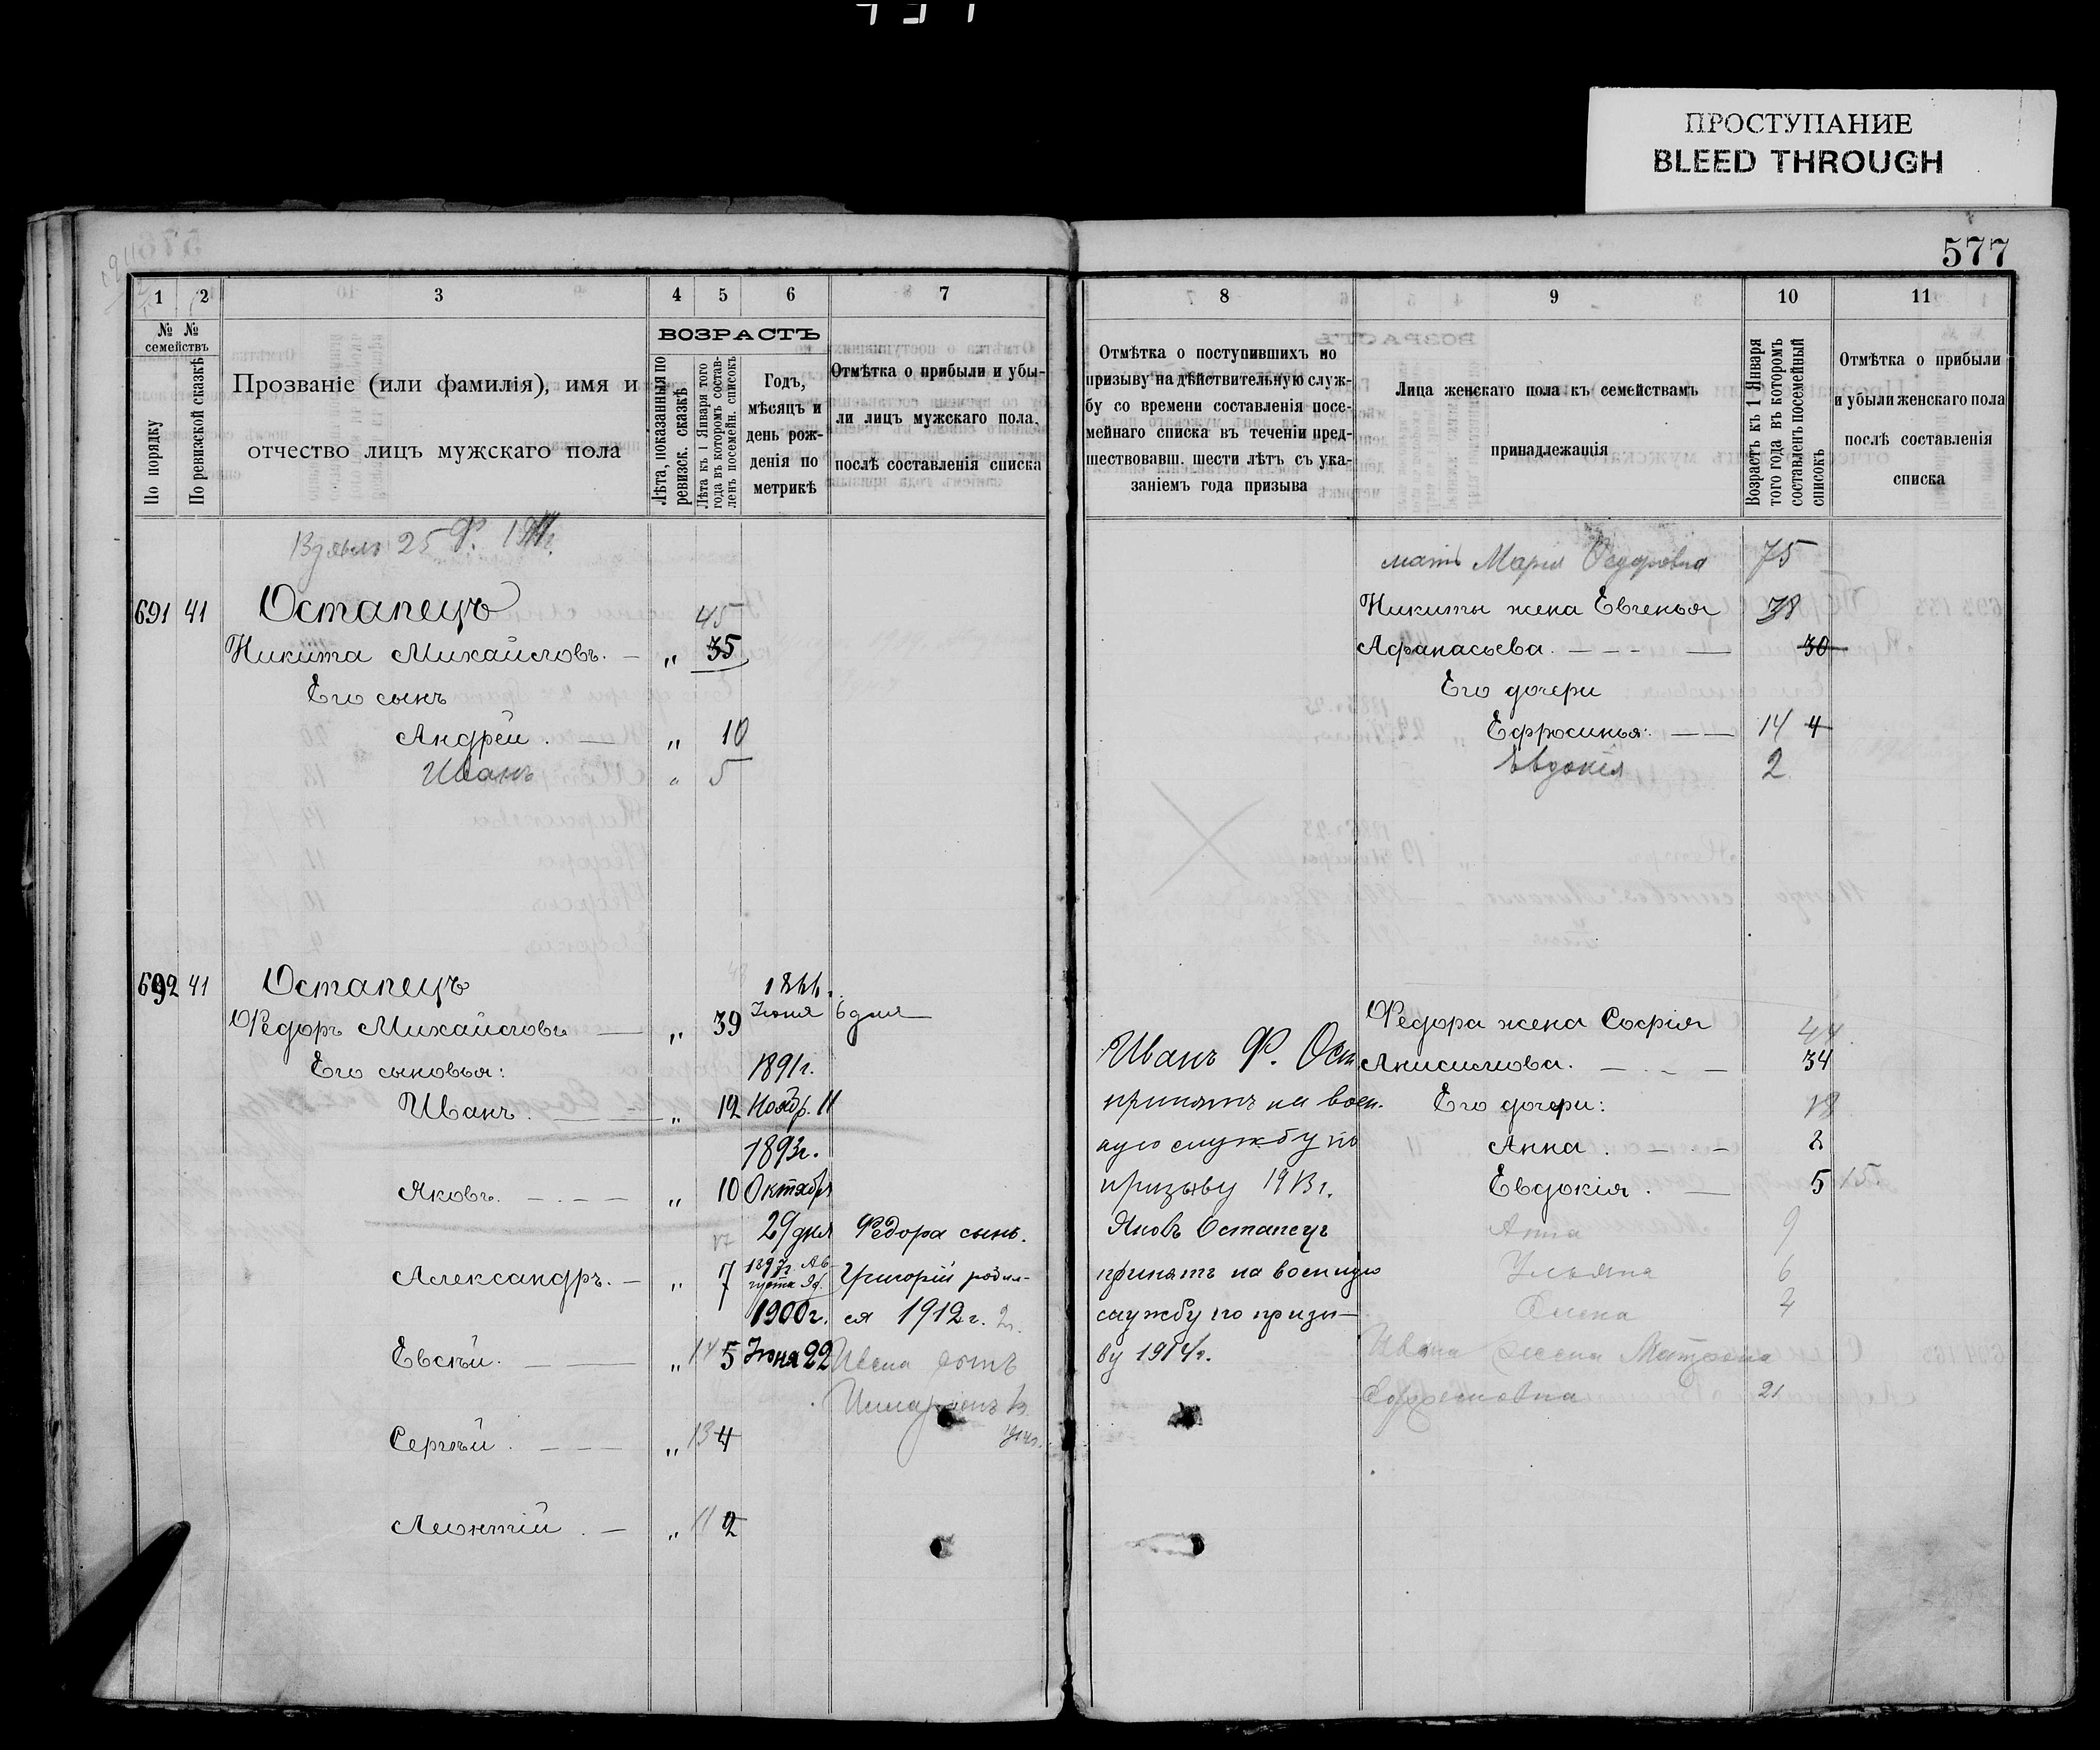 ПРОСТУПАНИЕ
BLEED THROUGH
577
1 2 3 4 5 6 7
№ № семействъ
По порядку
По ревизской сказкѣ
Прозваніе (или фамилія), имя и
отчество лицъ мужскаго пола
ВОЗРАСТЪ
Лѣта, показанныя по
ревизск. сказкѣ
Лѣта къ 1 Января того
года въ которомъ состав-
ленъ посемейн. списокъ
Годъ,
мѣсяцъ и
день рож-
денія по
метрикѣ
Отмѣтка о прибыли и убы-
ли лицъ мужскаго пола,
послѣ составленія списка
25 Ф.
691 41 Остапецъ 45
Никита Михайловъ. — „ 35
Его сынъ
Андрей. — „ 10
Иванъ „ 5
692 41 Остапецъ 1866.
Федоръ Михайловъ — „ 39 Іюня 6 дня
Его сыновья: 1891г.
Иванъ. — „ 12 Ноябр. 11
1893г.
Яковъ. — „ 10 Октября
29 дня Федора сынъ
17
Александръ. — „ 7 1897г. Ав-
густа Григорій родил-
1900г. ся 1912г.
Евсѣй. — „ 14 5 Іюня 22 Ивана сынъ
Сергѣй. — „ 13 4
Леонтій. — „ 11 2
8 9 10 11
Отмѣтка о поступившихъ по
призыву на дѣйствительную служ-
бу со времени составленія посе-
мейнаго списка въ теченіи пред-
шествовавш. шести лѣтъ съ ука-
заніемъ года призыва
Лица женскаго пола къ семействамъ
принадлежащія
Возрастъ къ 1 Января
того года въ которомъ
составленъ посемейный
списокъ
Отмѣтка о прибыли
и убыли женскаго пола
послѣ составленія
списка
мать Марія Федоровна 75
Никиты жена Евгенья 38
Афанасьева. — 30
Его дочери
Ефросинья. — 14 4
Евдокія 2
Федора жена Софія 44
Анисимова. — 34
Его дочери:
Анна. — 2
Евдокія. — 5 15.
Анна 9
Ульяна 6
Иванъ Ф. Ост.
принятъ на воен-
ную службу по
призыву 1913г.
Яковъ Остапецъ
принятъ на военную
службу по призы-
ву 1914г.
Ивана жена Матрона
21